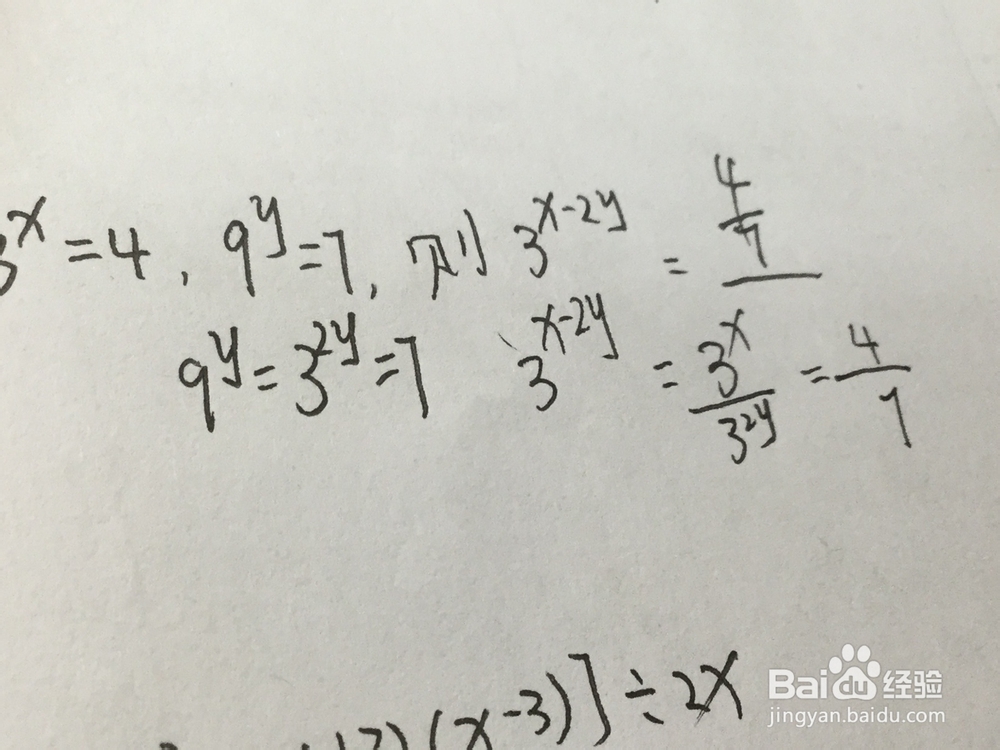 3^x=4, 9^y=7, 则 3^{x-2y} = 4/7
9^y=3^{2y}=7 3^{x-2y} = 3^x/3^{2y} = 4/7
(x-3)]÷2x
Baidu经验
jingyan.baidu.com